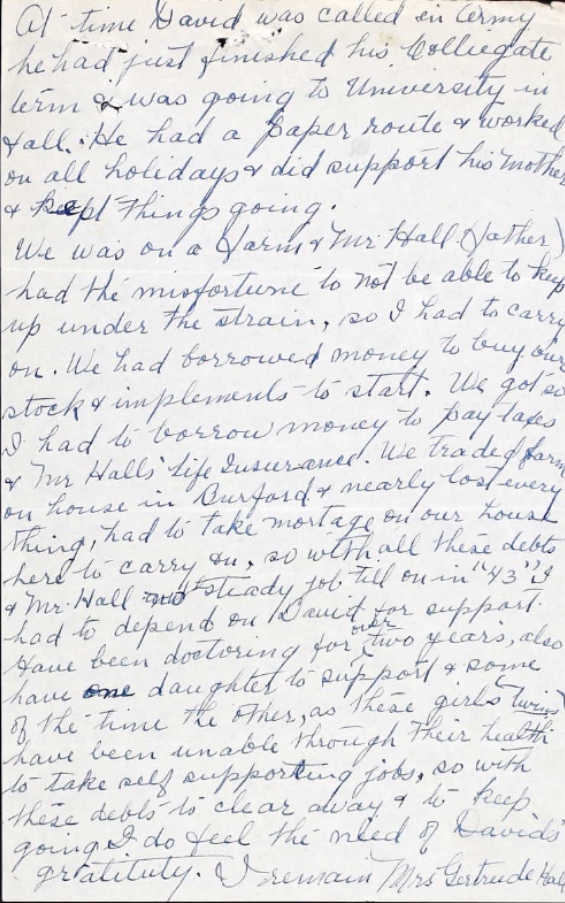 At time David was called in Army
he had just finished his Colliegate
term & was going to University in
fall. He had a paper route & worked
on all holidays & did support his mother
& kept things going.
We was on a farm & Mr. Hall (father)
had the misfortune to not be able to keep
up under the strain, so I had to carry
on. We had borrowed money to buy our
stock & implements to start. We got so
I had to borrow money to pay taxes
& Mr Halls' Life Insurance. We traded farm
on house in Burford & nearly lost every
thing, had to take mortage on our house
here to carry on, so with all these debts
& Mr. Hall no steady job till on in "43" I
had to depend on David for support.
Have been doctoring for over two years, also
have one daughter to support & some
of the time the other, as these girls (twins)
have been unable through their health
to take self supporting jobs, so with
these debts to clear away & to keep
going I do feel the need of David's
gratituty. I remain Mrs Gertrude Hall